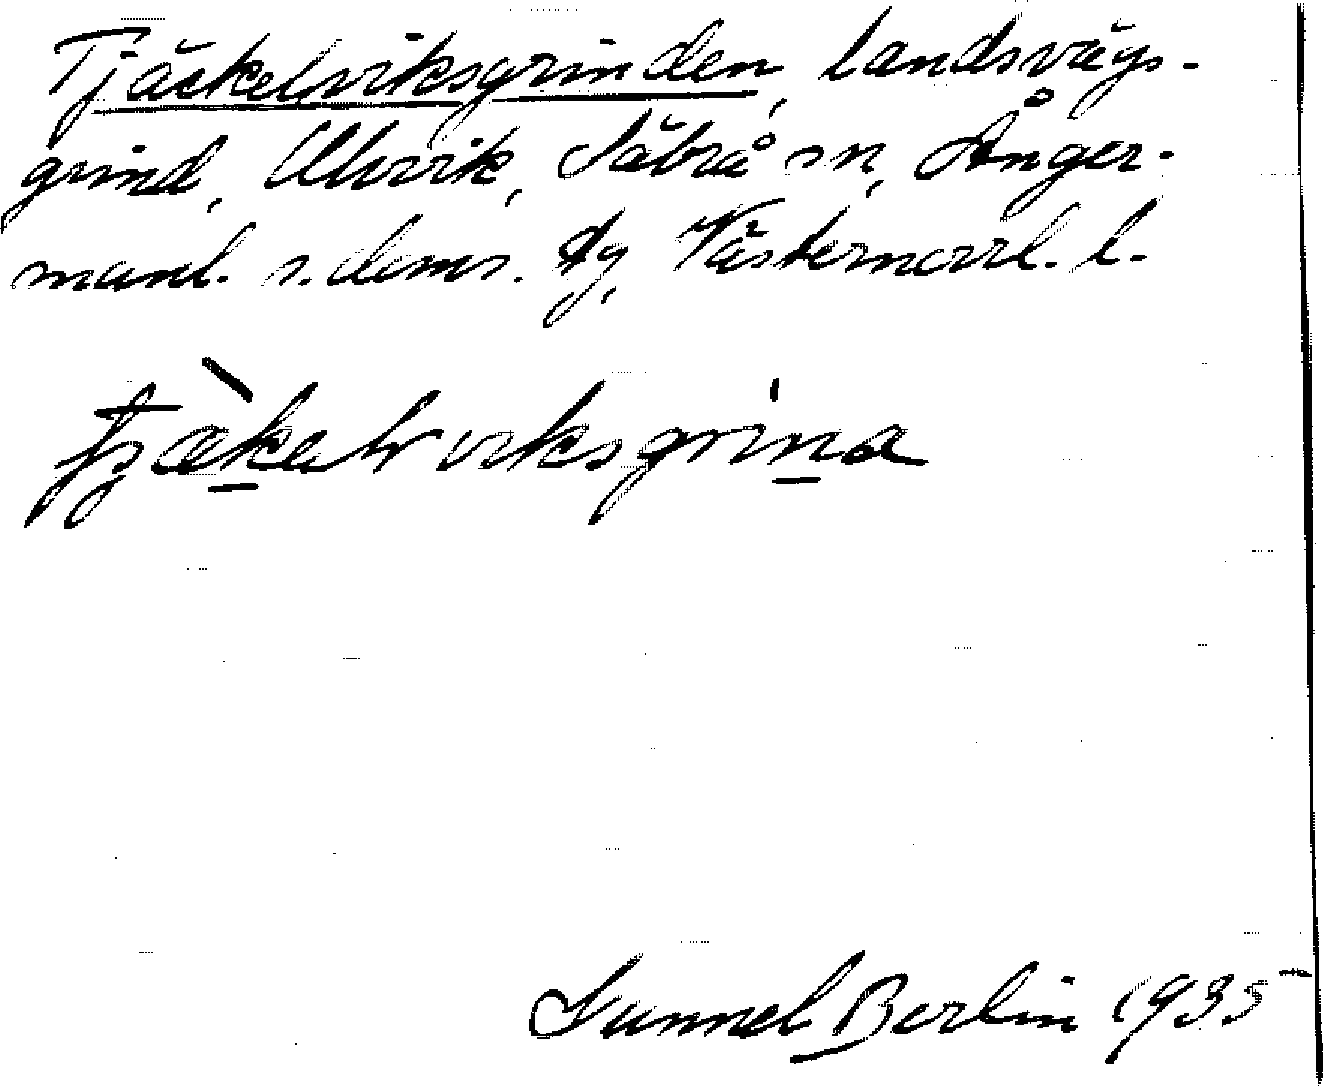 Tjäckelviksgrinden, landsvägs-
grind, Ulvvik, Säbrå sn, Ånger-
manl. s. doms. tg, Västernorrl. l.
tjæ̀kalviksgrina
Gunnel Berlin 1935